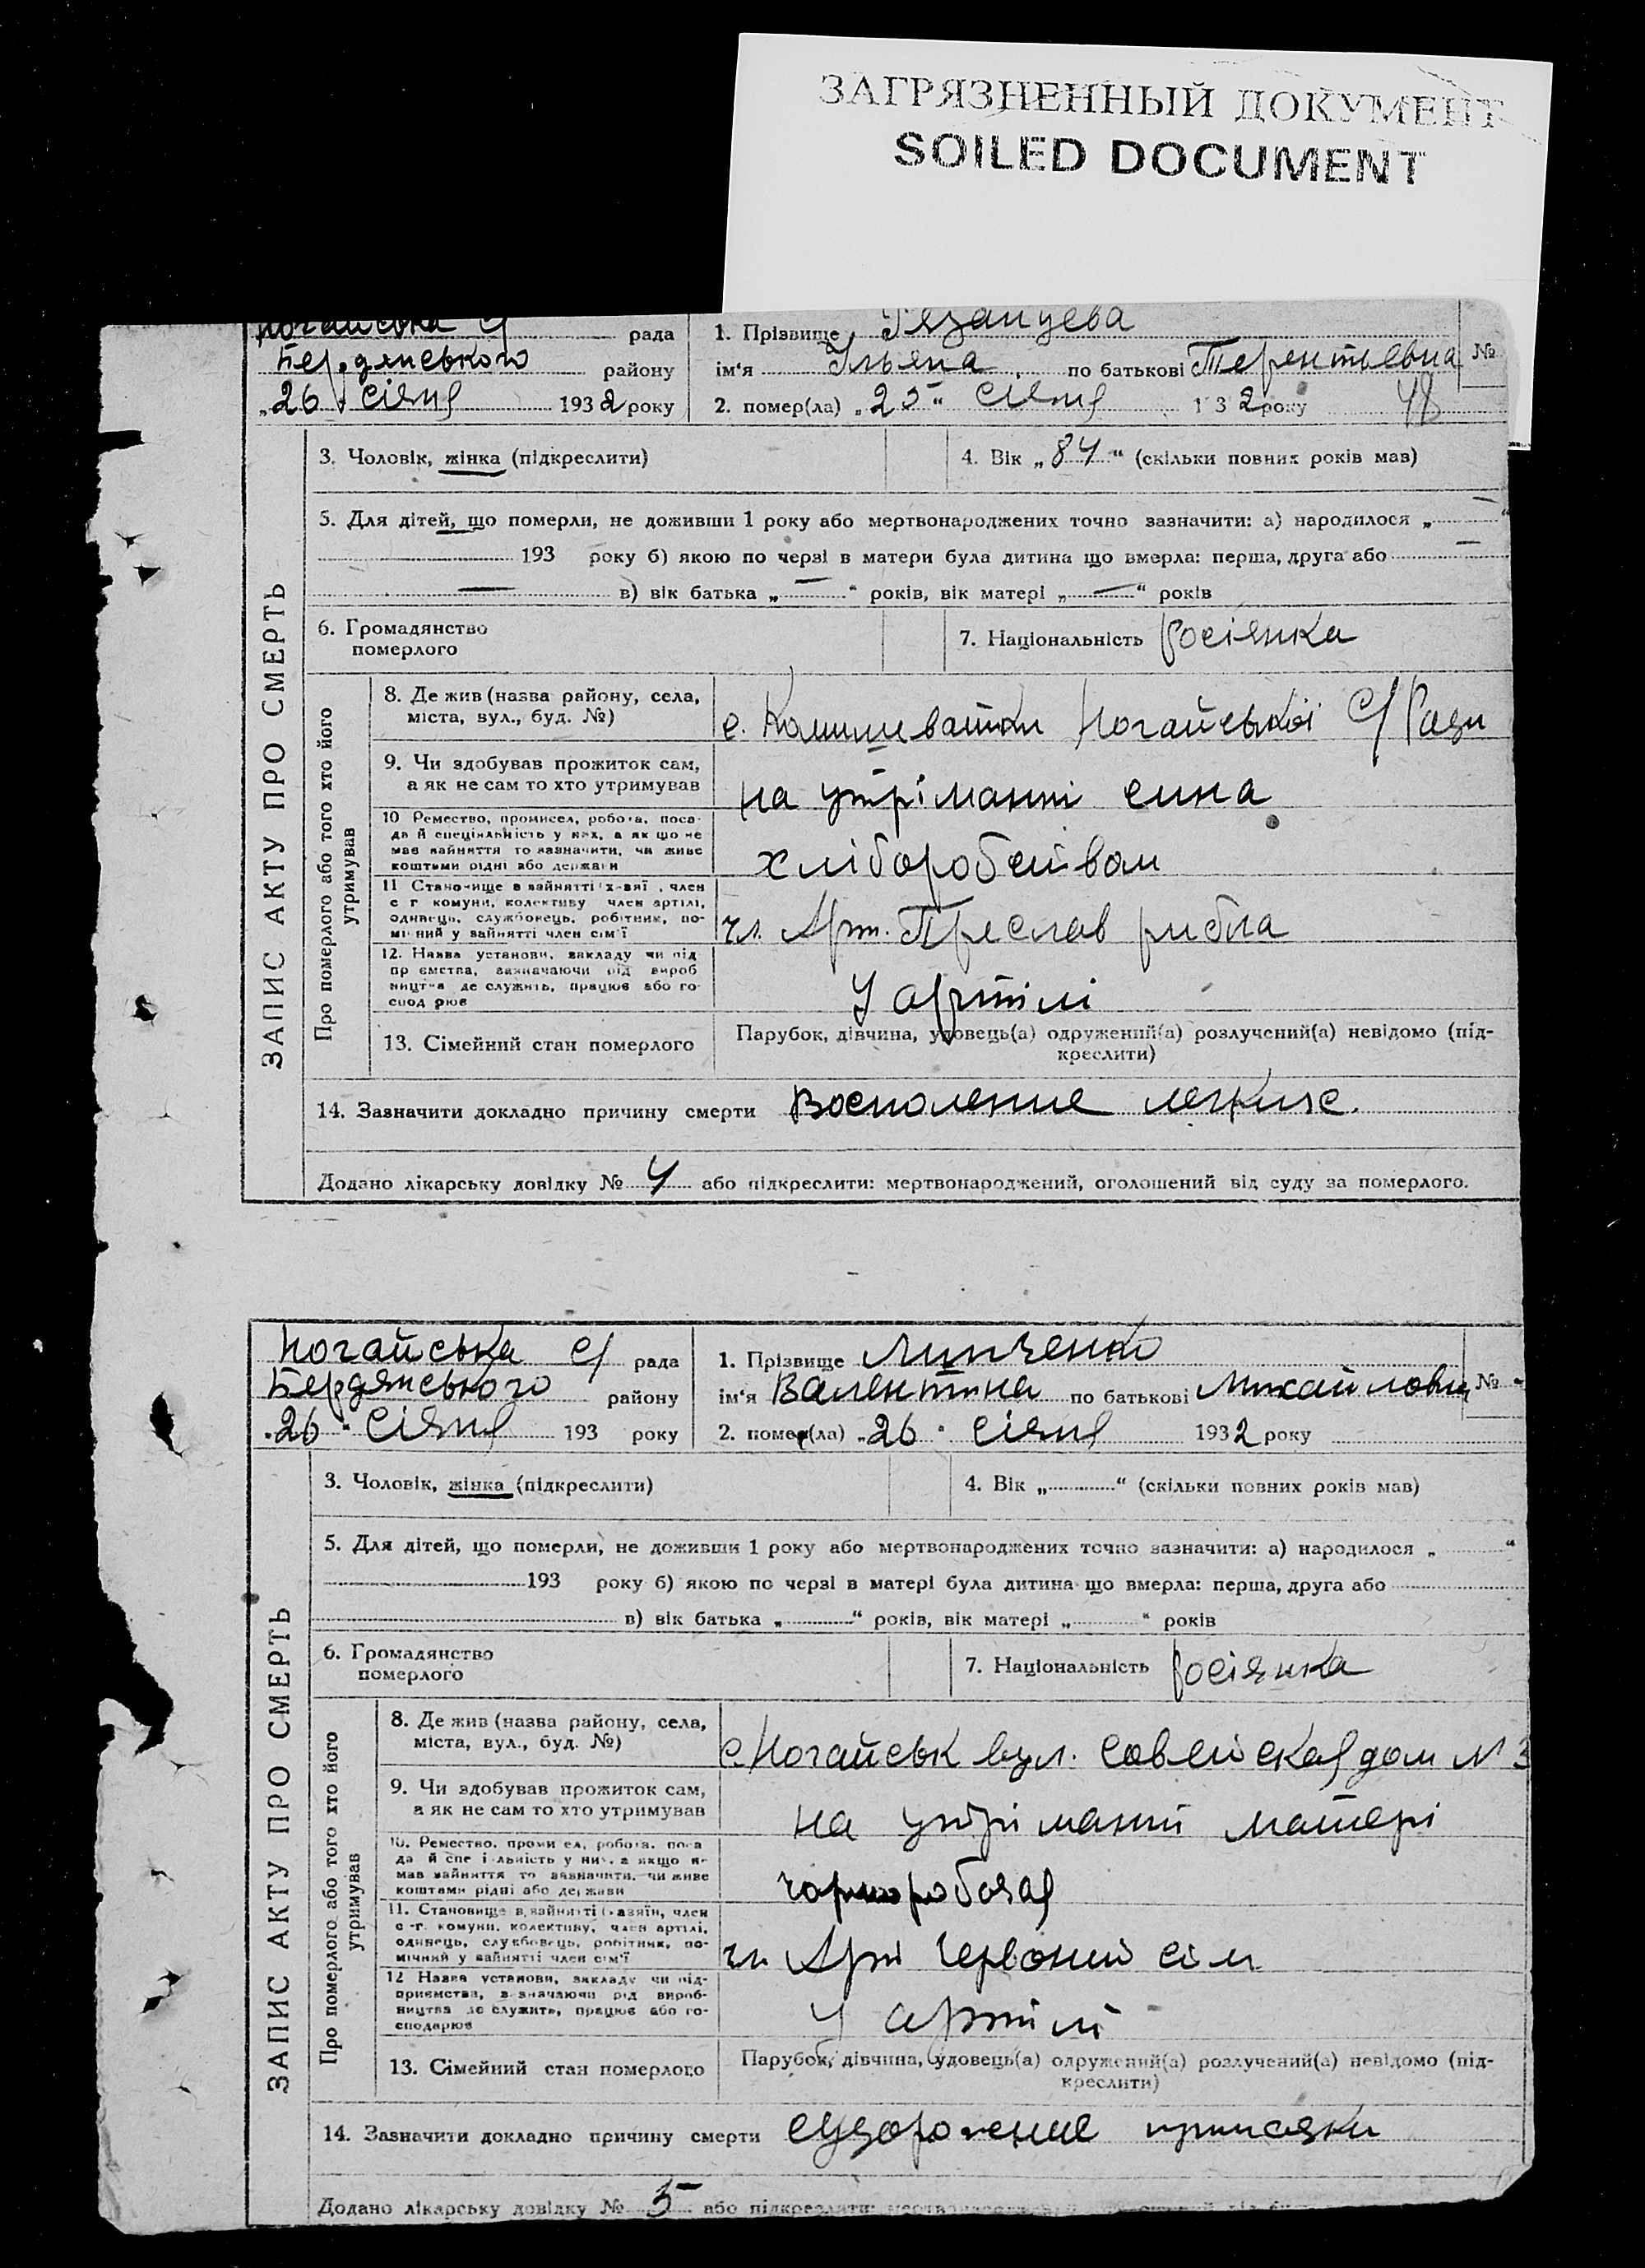 ЗАГРЯЗНЕННЫЙ ДОКУМЕНТ
SOILED DOCUMENT
Ногайська С/ рада
Бердянського району
„26" січня 1932 року
1. Прізвище Рязанцева
ім'я Ульяна по батькові Терентьевна №
2. помер(ла) „25" січня 1 3 2 року 48
3. Чоловік, жінка (підкреслити)
4. Вік „84" (скільки повних років мав)
5. Для дітей, що померли, не доживши 1 року або мертвонароджених точно зазначити: а) народилося „ — "
193 року б) якою по черзі в матери була дитина що вмерла: перша, друга або —
— в) вік батька „—" років, вік матері „—" років
6. Громадянство
померлого
7. Національність росіянка
ЗАПИС АКТУ ПРО СМЕРТЬ
Про померлого або того хто його
утримував
8. Де жив (назва району, села,
міста, вул., буд. №)
с. Камишеватки Ногайської С/Ради
9. Чи здобував прожиток сам,
а як не сам то хто утримував
на утріманні сина
10 Ремество, промисел, робота, поса-
да й спеціяльність у них, а як що не
мав зайняття то зазначити, чи живе
коштами рідні або держави
хліборобством
11 Становище в зайнятті
с г комуни, колективу член артілі,
одинець, службовець, робітник, по-
мічний у зайнятті член сім'ї
чл. Арт.
12. Назва установи, закладу чи під
пр ємства, зазначаючи рід вироб
ництва де служить, працює або го-
спод рює
У артілі
13. Сімейний стан померлого
Парубок, дівчина, удовець(а) одружений(а) розлучений(а) невідомо (під-
креслити)
14. Зазначити докладно причину смерти Восполение легких.
Додано лікарську довідку № 4 або підкреслити: мертвонароджений, оголошений від суду за померлого.
Ногайська С/ рада
Бердянського району
„26" січня 193 року
1. Прізвище
ім'я Валентина по батькові Михайловна № -
2. помер(ла) „26" січня 1932 року
3. Чоловік, жінка (підкреслити)
4. Вік „ " (скільки повних років мав)
5. Для дітей, що померли, не доживши 1 року або мертвонароджених точно зазначити: а) народилося „ "
193 року б) якою по черзі в матері була дитина що вмерла: перша, друга або
в) вік батька „ " років, вік матері „ " років
6. Громадянство
померлого
7. Національність росіянка
ЗАПИС АКТУ ПРО СМЕРТЬ
Про померлого або того хто його
утримував
8. Де жив (назва району, села,
міста, вул., буд. №)
с. Ногайськ вул. Советская дом № 3
9. Чи здобував прожиток сам,
а як не сам то хто утримував
на утріманні матері
10. Ремество, проми ел, робота, поса
да й спе і льність у них, а якщо не
мав зайняття то зазначити, чи живе
коштами рідні або держави
чорноробочая
11. Становище в зайнятті (хазяїн, член
с-г. комуни, колективу, член артілі,
одинець, службовець, робітник, по-
мічний у зайнятті член сім'ї
чл. Арт Червоний
12 Назва установи, закладу чи під-
приємства, зазначаючи рід вироб-
ництва де служить, працює або го-
сподарює
У артілі
13. Сімейний стан померлого
Парубок, дівчина, удовець(а) одружений(а) розлучений(а) невідомо (під-
креслити)
14. Зазначити докладно причину смерти
Додано лікарську довідку № 5 або підкреслити: